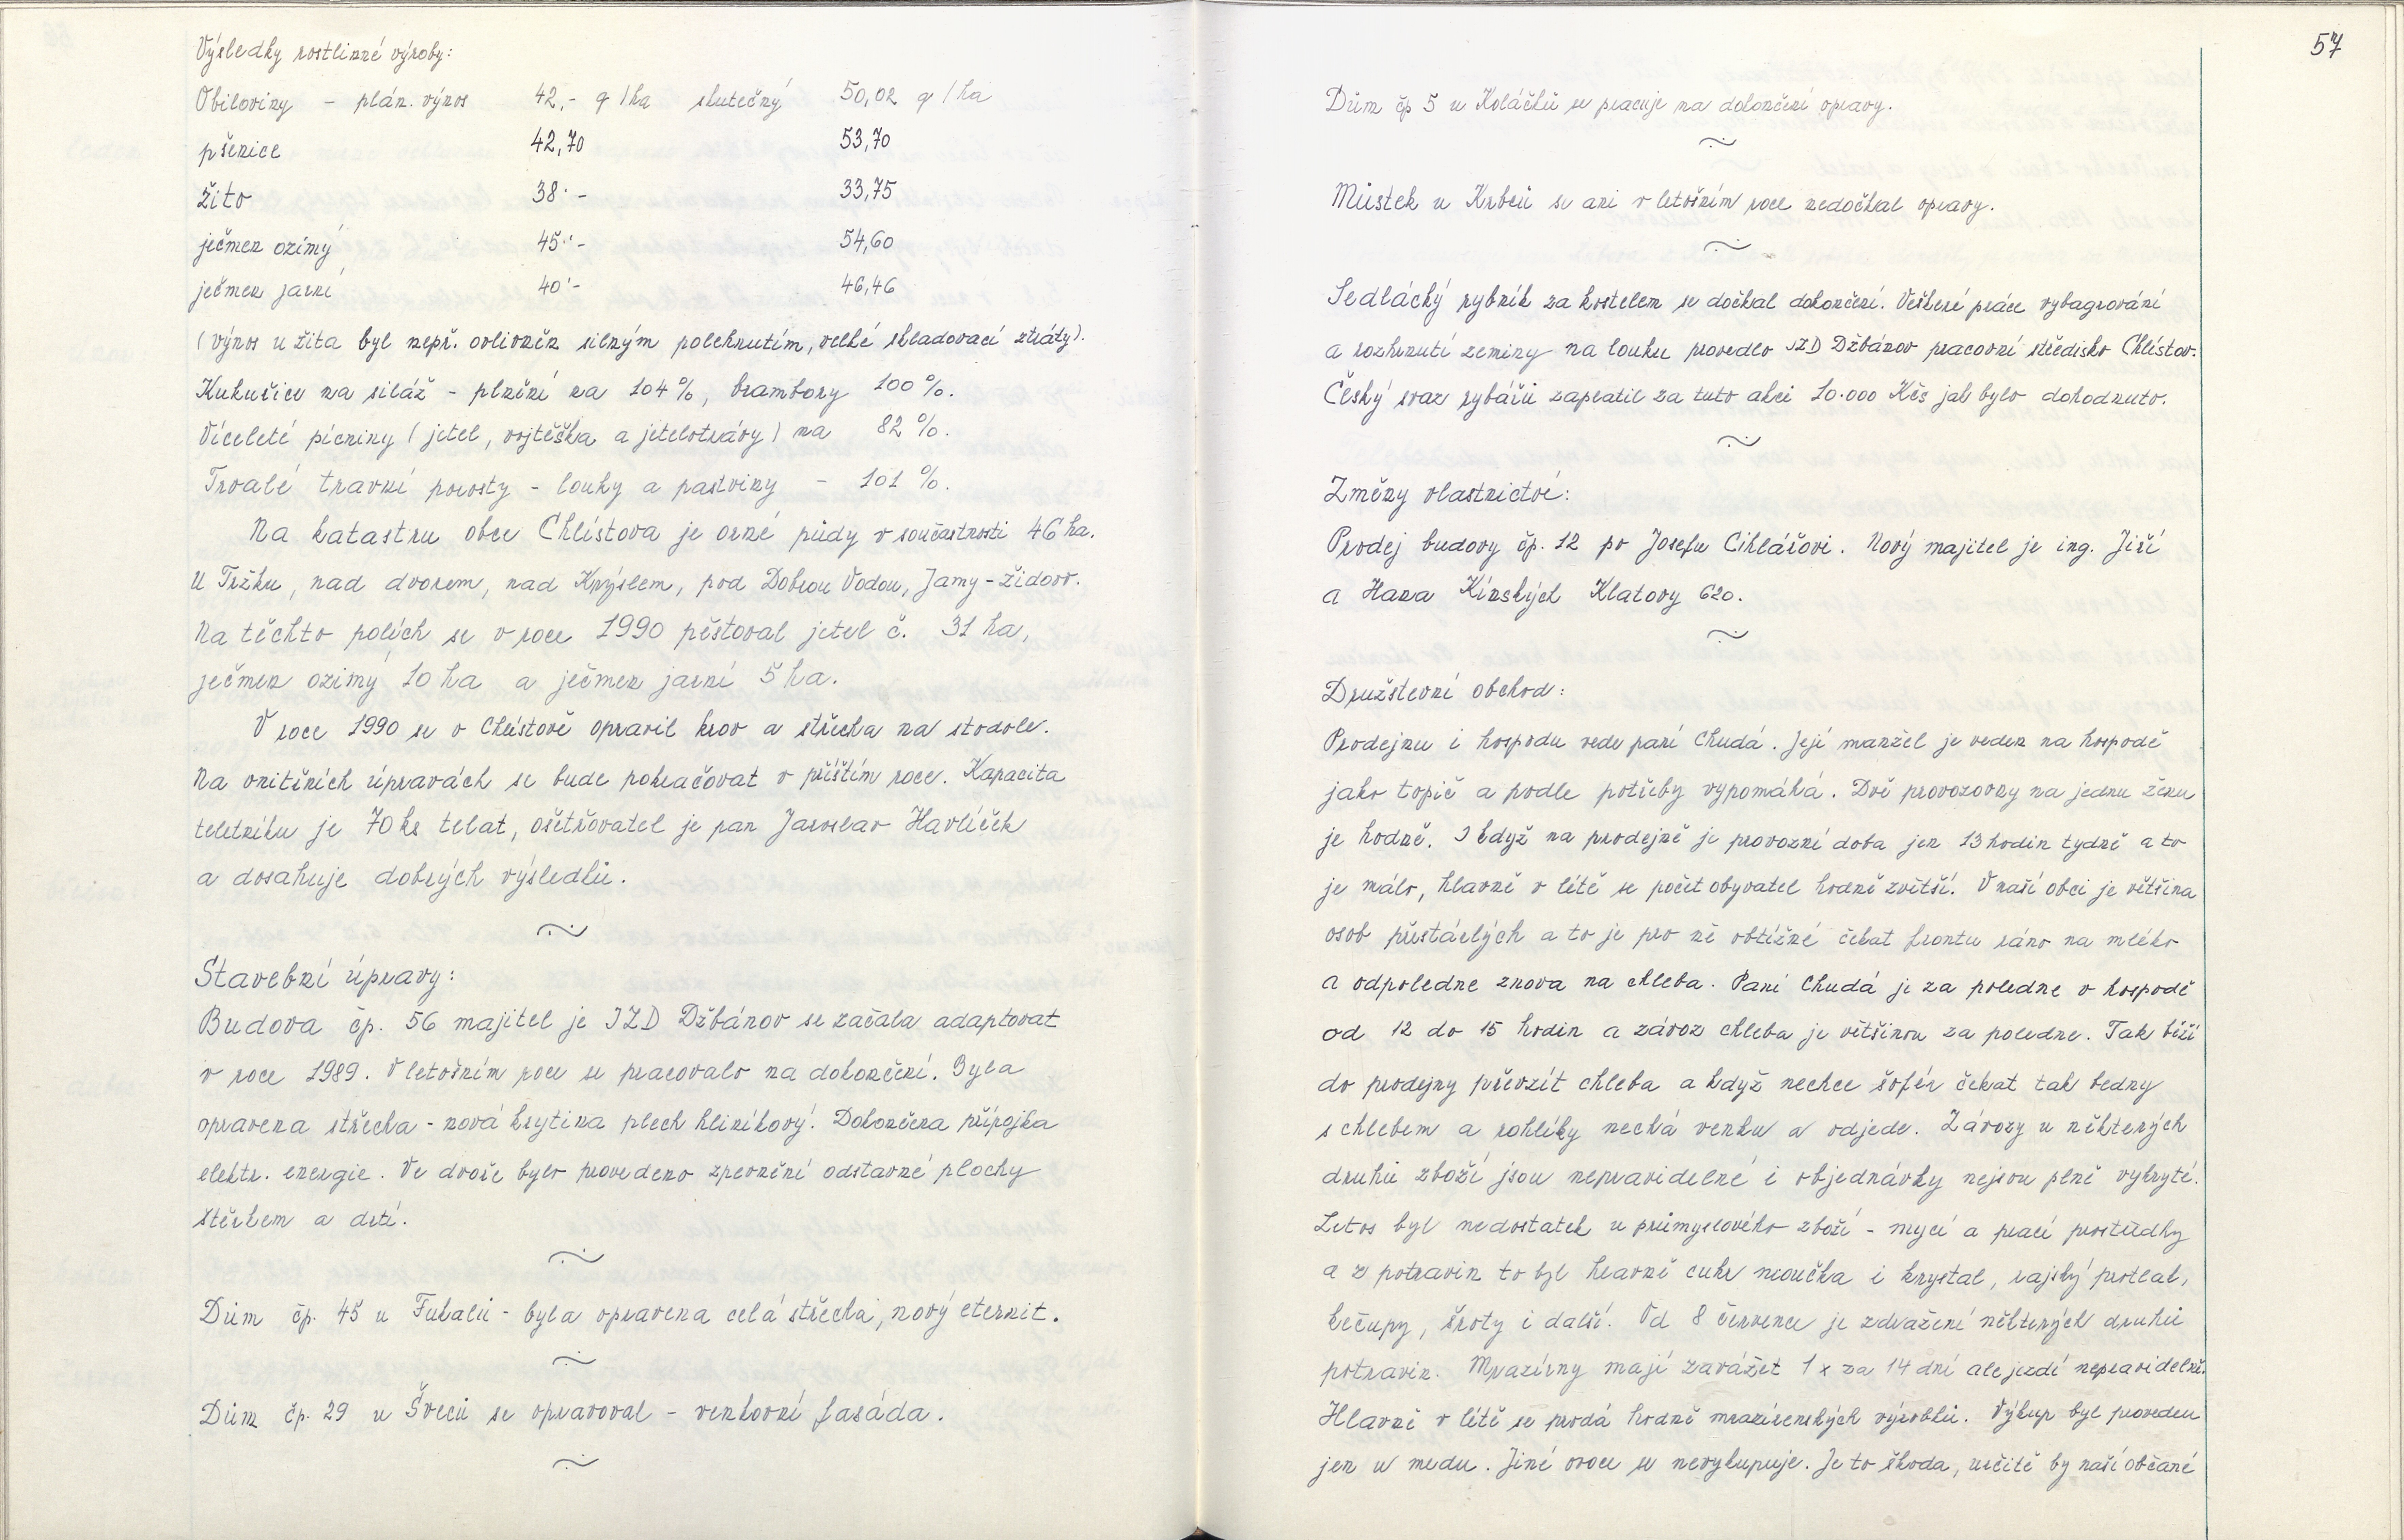 Výsledky rostlinné výroby:
Obiloviny - plán. výnos 42,- q/ha skutečný 50,02 q/ha
pšenice 42,70 53,70
žito 38.- 33,75
ječmen ozimý 45.- 54,60
ječmen jarní 40.- 46,46
(výnos u žita byl nepř. ovlivněn silným polehnutím, velké skladovací ztráty).
Kukuřice na siláž - plnění na 104%, brambory 100%.
Víceleté pícniny (jetel, vojtěška a jetelotrávy) na 82%.
Trvalé travní porosty - louky a pastviny - 101%.
Na katastru obce Chlístova je orné půdy v součastnosti 46 ha.
U Tržku, nad dvorem, nad Krýslem, pod Dobrou Vodou, Jamy - židov.
Na těchto polích se v roce 1990 pěstoval jetel č. 31 ha,
ječmen ozimý 10 ha a ječmen jarní 5 ha.
V roce 1990 se v Chlístově opravil krov a střecha na stodole.
Na vnitřních úpravách se bude pokračovat v příštím roce. Kapacita
teletníku je 70 ks telat, ošetřovatel je pan Jaroslav Havlíček
a dosahuje dobrých výsledků.
Stavební úpravy:
Budova čp. 56 majitel je JZD Džbánov se začala adaptovat
v roce 1989. V letošním roce se pracovalo na dokončení. Byla
opravena střecha - nová krytina plech hliníkový. Dokončena přípojka
elektr. energie. Ve dvoře bylo provedeno zpevnění odstavné plochy
štěrkem a drtí.
Dům čp. 45 u Fukalů - byla opravena celá střecha, nový eternit.
Dům čp. 29 u Ševců se opravoval - venkovní fasáda.
57
Dům čp 5 u Koláčků se pracuje na dokončení opravy.
Můstek u Krbců se ani v letošním roce nedočkal opravy.
Sedlácký rybník za kostelem se dočkal dokončení. Veškeré práce vybagrování
a rozhrnutí zeminy na louku provedlo JZD Džbánov pracovní středisko Chlístov.
Český svaz rybářů zaplatil za tuto akci 10.000 Kčs jak bylo dohodnuto.
Změny vlastnictví:
Prodej budovy čp. 12 po Josefu Cihlářovi. Nový majitel je ing. Jiří
a Hana Kinských Klatovy 620.
Družstevní obchod:
Prodejnu i hospodu vede paní Chudá. Její manžel je veden na hospodě
jako topič a podle potřeby vypomáhá. Dvě provozovny na jednu ženu
je hodně. I když na prodejně je provozní doba jen 13 hodin tydně a to
je málo, hlavně v létě se počet obyvatel hodně zvětší. V naší obci je většina
osob přestárlých a to je pro ně obtížné čekat frontu ráno na mléko
a odpoledne znova na chleba. Paní Chudá je za poledne v hospodě
od 12 do 15 hodin a závoz chleba je většinou za poledne. Tak běží
do prodejny převzít chleba a když nechce šofér čekat tak bedny
s chlebem a rohlíky nechá venku a odjede. Závozy u některých
druhů zboží jsou nepravidelné i objednávky nejsou plně vykryté.
Letos byl nedostatek u průmyslového zboží - mycí a prací prostředky
a z potravin to byl hlavně cukr moučka i krystal, rajský protlak,
kečupy, šroty i další. Od 8 července je zdražení některých druhů
potravin. Mrazírny mají zavážet 1x za 14 dní ale jezdí nepravidelně.
Hlavně v létě se prodá hodně mrazírenských výrobků. Výkup byl proveden
jen u medu. Jiné ovoce se nevykupuje. Je to škoda, určitě by naší občané